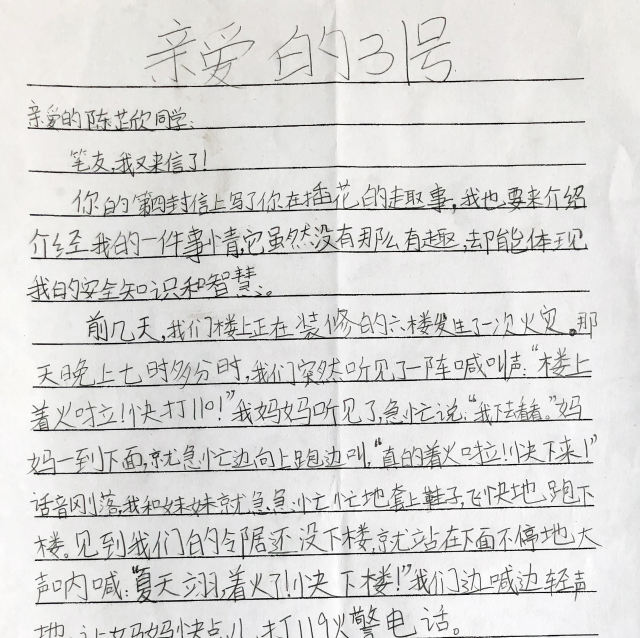 亲爱的31号
亲爱的陈芷欣同学:
笔友,我又来信了!
你的第四封信上写了你在插花的走取事,我也要来介绍
介经我的一件事情,它虽然没有那么有趣,却能体现
我的安全知识和智慧。
前几天,我们楼上正在装修的六楼发生了一次火灾。那
天晚上七时多分时,我们突然听见了一阵喊叫声:“楼上
着火啦!快打119!”我妈妈听见了,急忙说:“我下去看看。”妈
妈一到下面,就急忙边向上跑边叫,“真的着火啦!快下来!”
话音刚落,我和妹妹就急急忙忙地套上鞋子,飞快地跑下
楼。见到我们的邻居还没下楼,就站在下面不停地大
声呐喊:“夏天翊,着火了!快下楼!”我们边喊边轻声
地让妈妈快点儿打119火警电话。